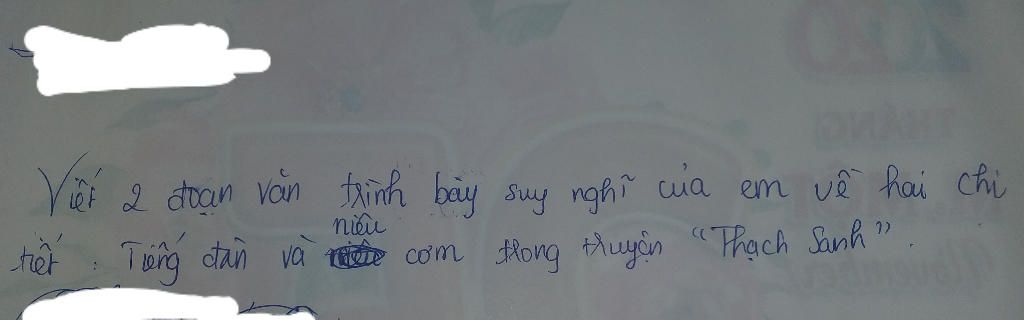 Viết 2 đoạn văn trình bày suy nghĩ của em về hai chi
tiết : Tiếng đàn và niêu cơm trong truyện "Thạch Sanh".
2020
THÁNG
November